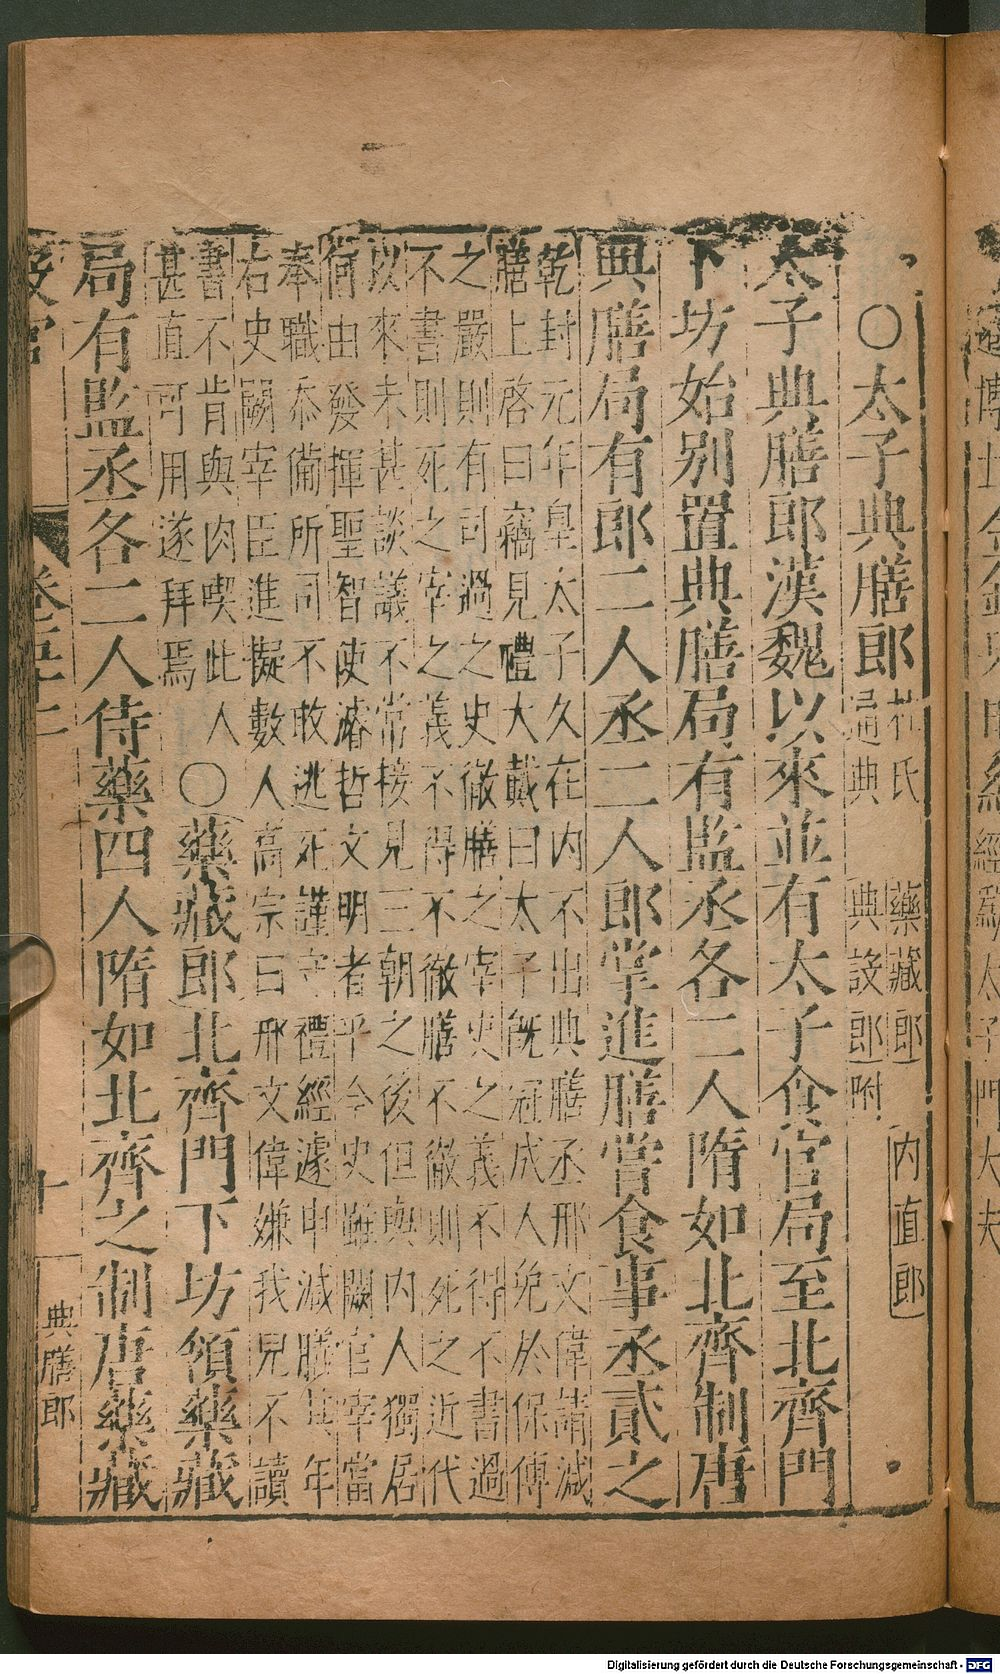 ○太子典膳郎 杜氏通典 藥藏郎 內直郎 典設郎附
太子典膳郎漢魏以來並有太子食官局至北齊門
下坊始別置典膳局有監丞各二人隋如北齊制唐
典膳局有郎二人丞二人郎掌進膳嘗食事丞貳之
乾封元年皇太子久在內不出典膳丞邢文偉請減
膳上啓曰竊見禮大戴曰太子既冠成人免於保傅
之嚴則有司過之史徹膳之宰史之義不得不書過
不書則死之宰之義不得不徹膳不徹則死之近代
以來未甚談議不常接見三朝之後但與內人獨居
何由發揮聖智使濬哲文明者乎今史雖闕官宰當
奉職忝備所司不敢逃死謹守禮經遽申減膳其年
右史闕宰臣進擬數人高宗曰邢文偉嫌我見不讀
書不肯與肉喫此人
甚直可用遂拜焉
○藥藏郎北齊門下坊領藥藏
局有監丞各二人侍藥四人隋如北齊之制唐藥藏
典膳郎
十
Digitalisierung gefördert durch die Deutsche Forschungsgemeinschaft - DFG